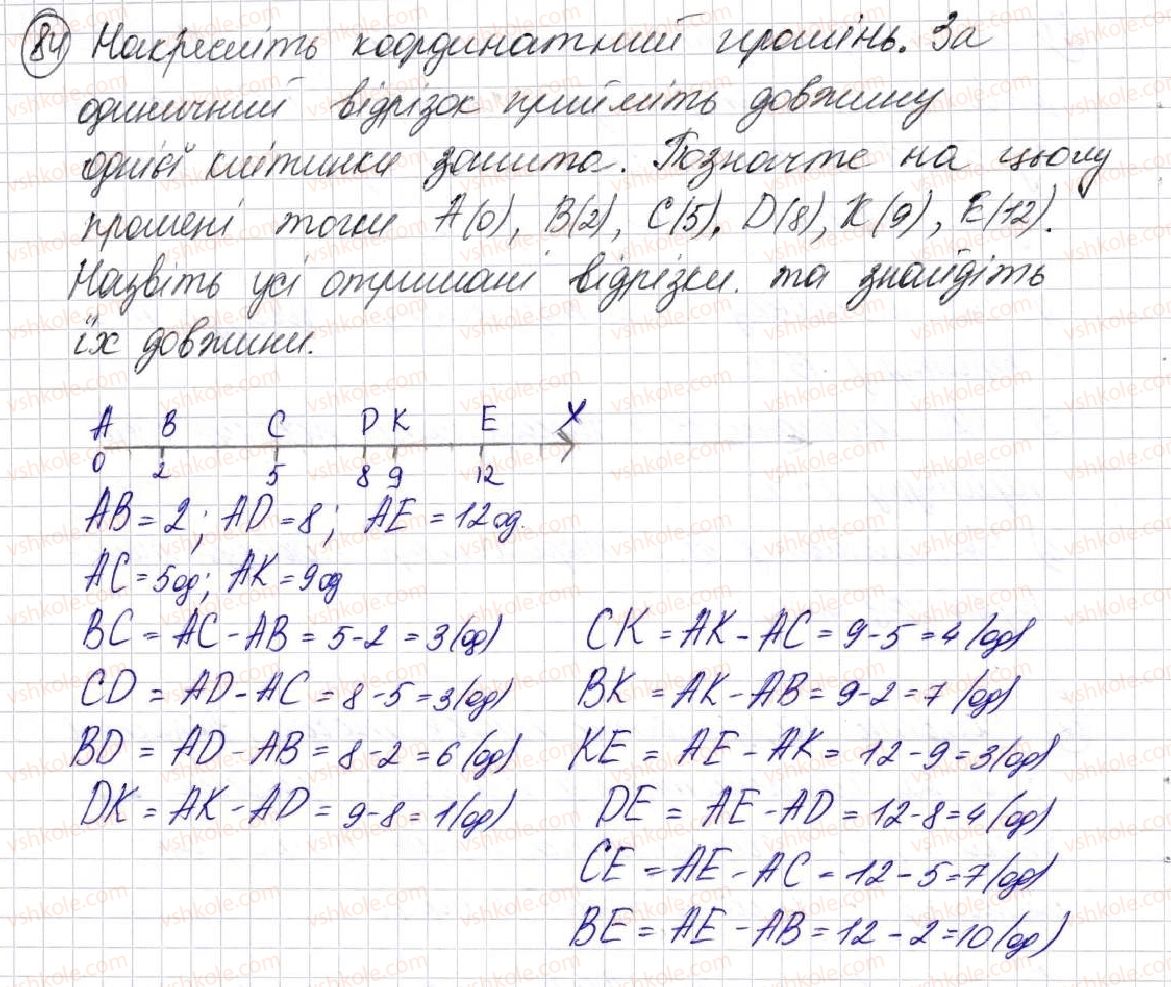 84 Накресліть координатний промінь. За
одиничний відрізок прийміть довжину
однієї клітинки зошита. Позначте на цьому
промені точки A(0), B(2), C(5), D(8), K(9), E(12).
Назвіть усі отримані відрізки. та знайдіть
їх довжини.
A B C D K E X
0 2 5 8 9 12
AB = 2; AD = 8; AE = 12 од.
AC = 5 од; AK = 9 од
BC = AC - AB = 5 - 2 = 3 (од)
CD = AD - AC = 8 - 5 = 3 (од)
BD = AD - AB = 8 - 2 = 6 (од)
DK = AK - AD = 9 - 8 = 1 (од)
CK = AK - AC = 9 - 5 = 4 (од)
BK = AK - AB = 9 - 2 = 7 (од)
KE = AE - AK = 12 - 9 = 3 (од)
DE = AE - AD = 12 - 8 = 4 (од)
CE = AE - AC = 12 - 5 = 7 (од)
BE = AE - AB = 12 - 2 = 10 (од)
vshkole.com